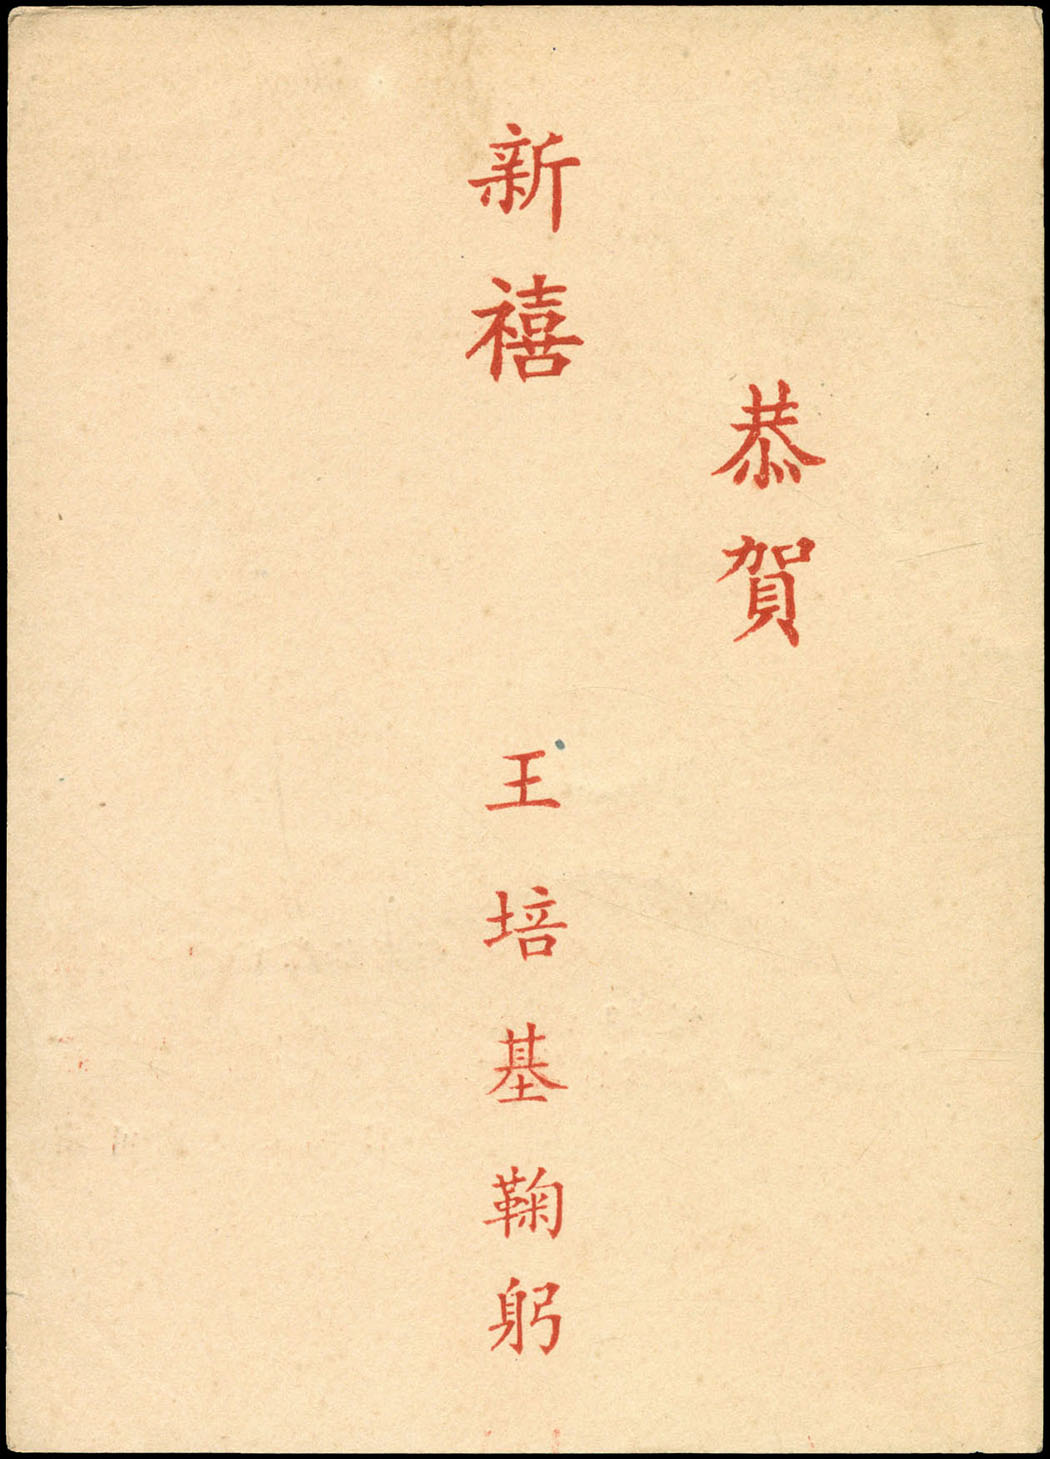 恭賀
新禧
王培基鞠躬